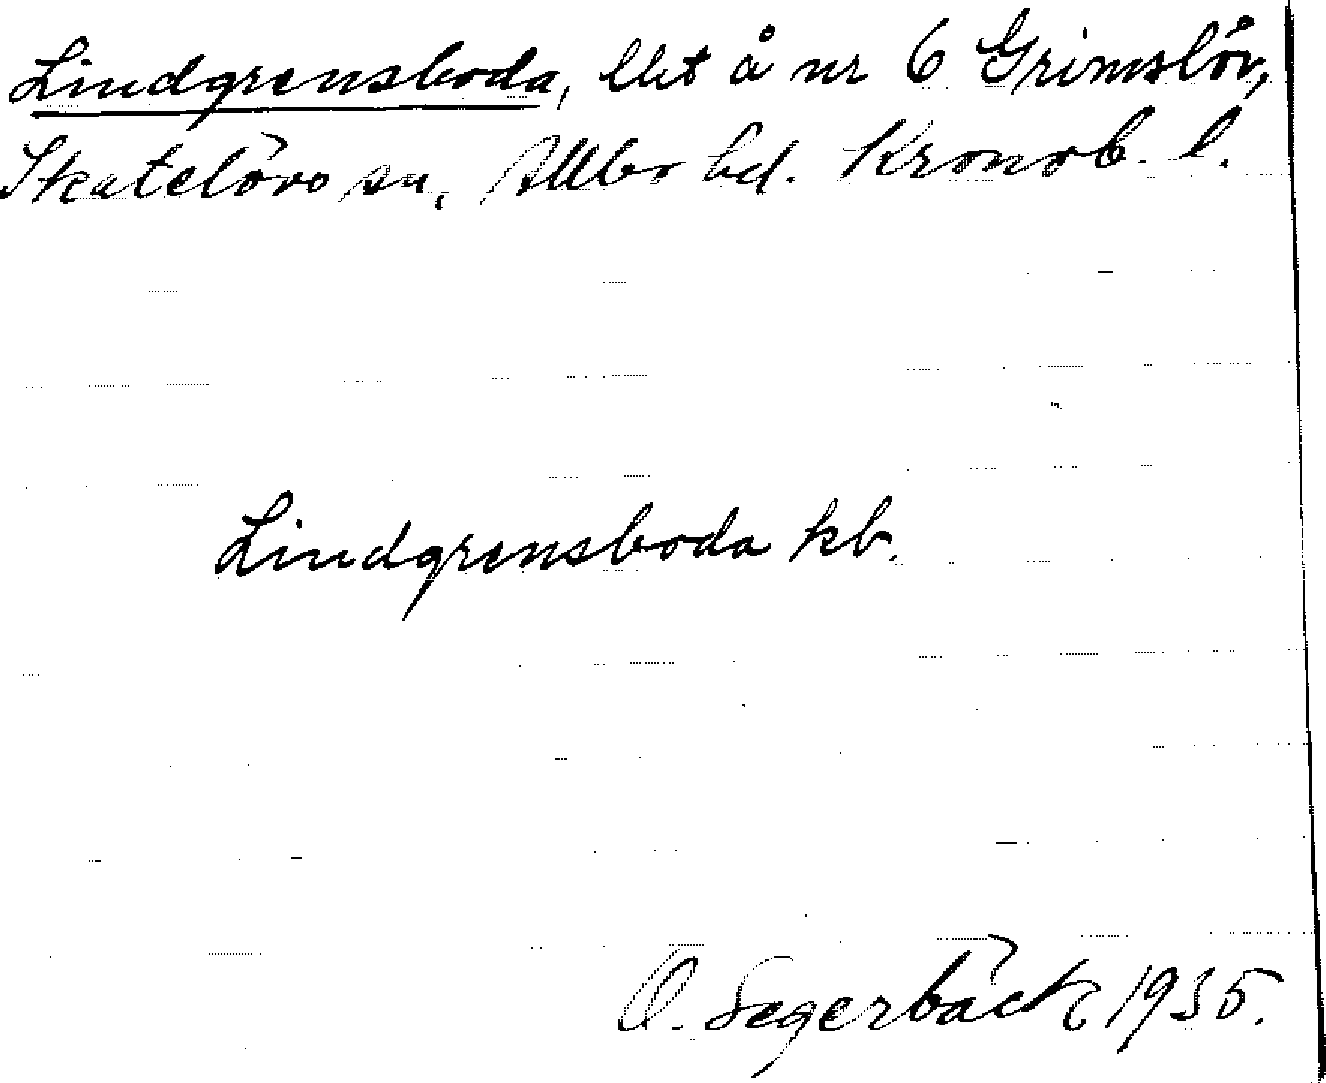 Lindgrensboda, lht å nr 6 Grimslöv,
Skatelövs sn, Allbo hd. Kronob. l.
Lindgrensboda kb.
O. Segerbäck 1935.